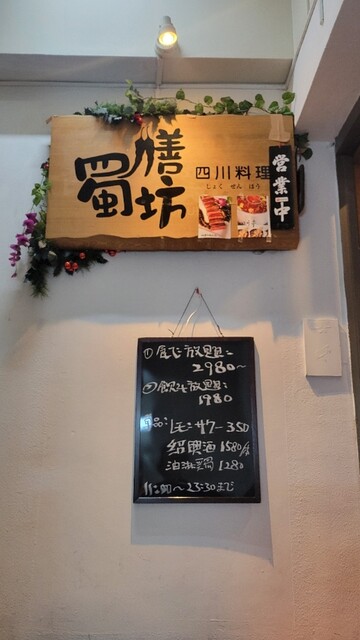 蜀膳坊
四川料理
しょく せん ぼう
営業中
①食べ放題:
2980~
②飲み放題:
1980
単品:レモンサワー350
紹興酒1580/本
泊沫鶏1280
11:00~23:30まで